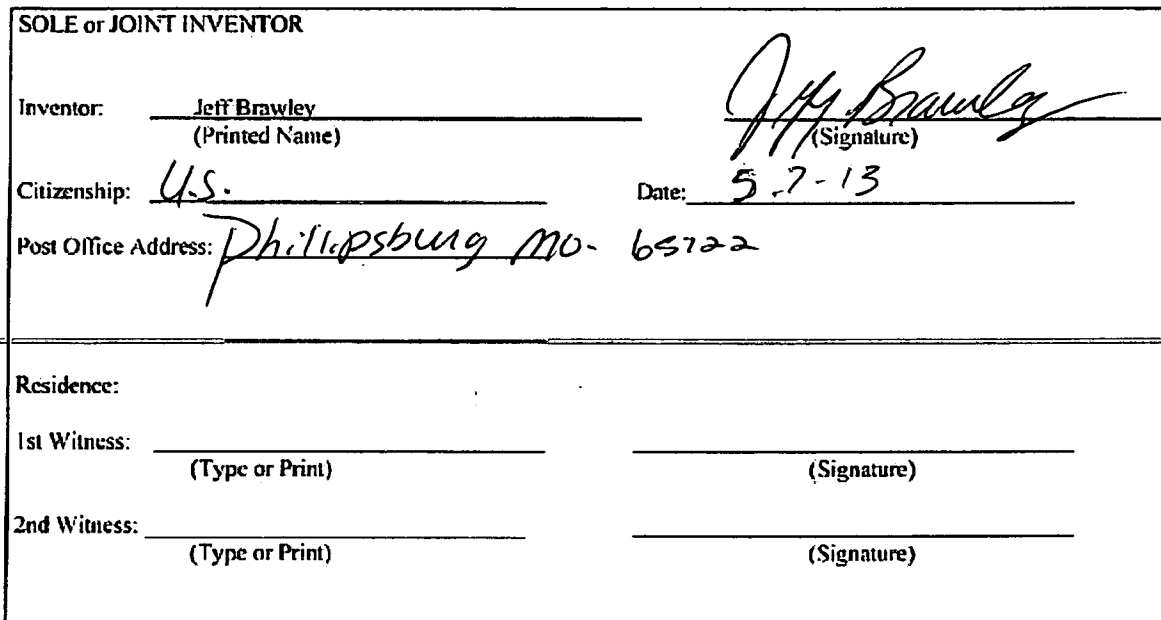 SOLE or JOINT INVENTOR
Inventor: Jeff Brawley Jeff Brawley
(Printed Name) (Signature)
Citizenship: U.S. Date: 5-7-13
Post Office Address: Phillipsburg MO. 65722
Residence:
1st Witness:
(Type or Print) (Signature)
2nd Witness:
(Type or Print) (Signature)